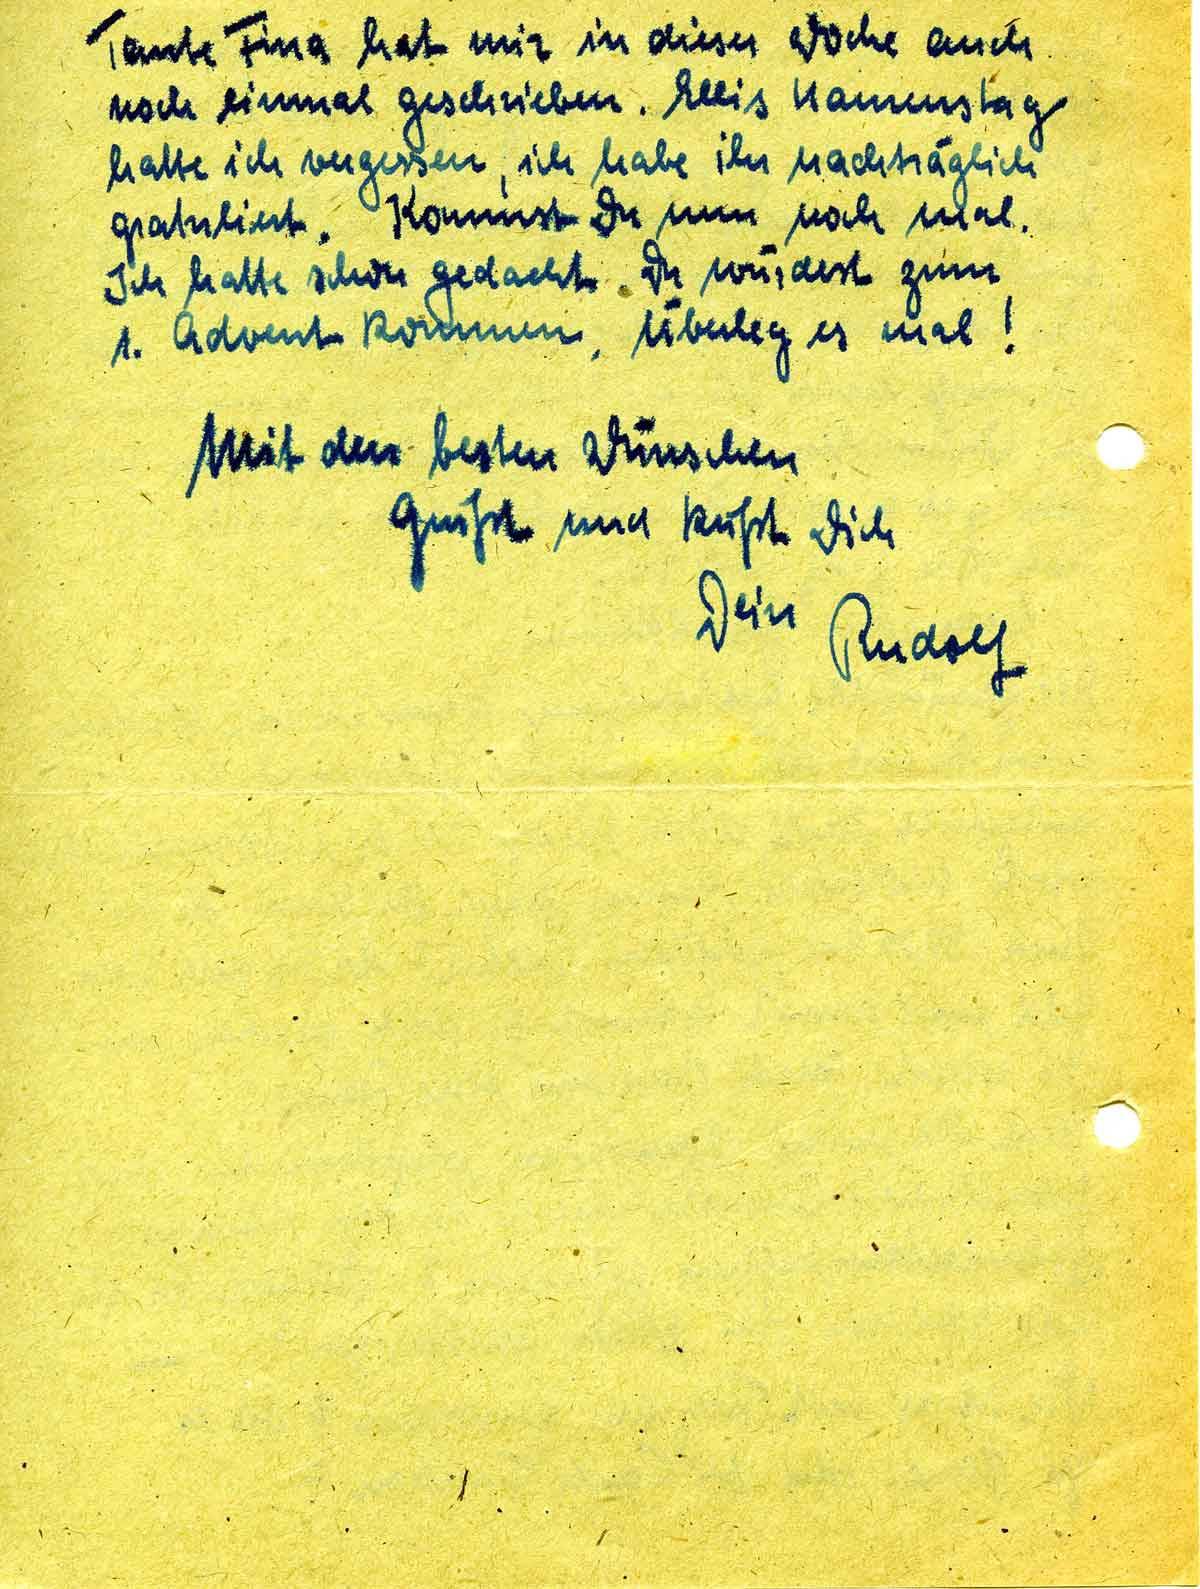 Tante Fina hat mir in dieser Woche auch
noch einmal geschrieben. Ellis Namenstag
hatte ich vergessen, ich habe ihr nachträglich
gratuliert. Kommst Du nun noch mal.
Ich hatte schon gedacht. Du würdest zum
1. Advent kommen. Überleg es mal!
Mit den besten Wünschen
Grüßt und küßt Dich
Dein Rudolf